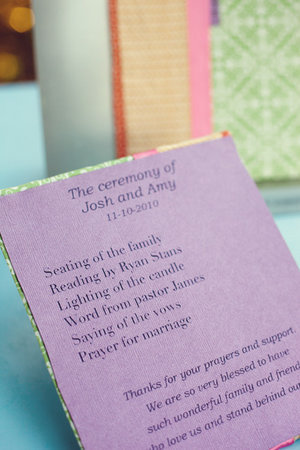 The ceremony of
Josh and Amy
11-10-2010
Seating of the family
Reading by Ryan Stans
Lighting of the candle
Word from pastor James
Saying of the vows
Prayer for marriage
Thanks for your prayers and support
We are so very blessed to have
such wonderful family and friend
who love us and stand behind our